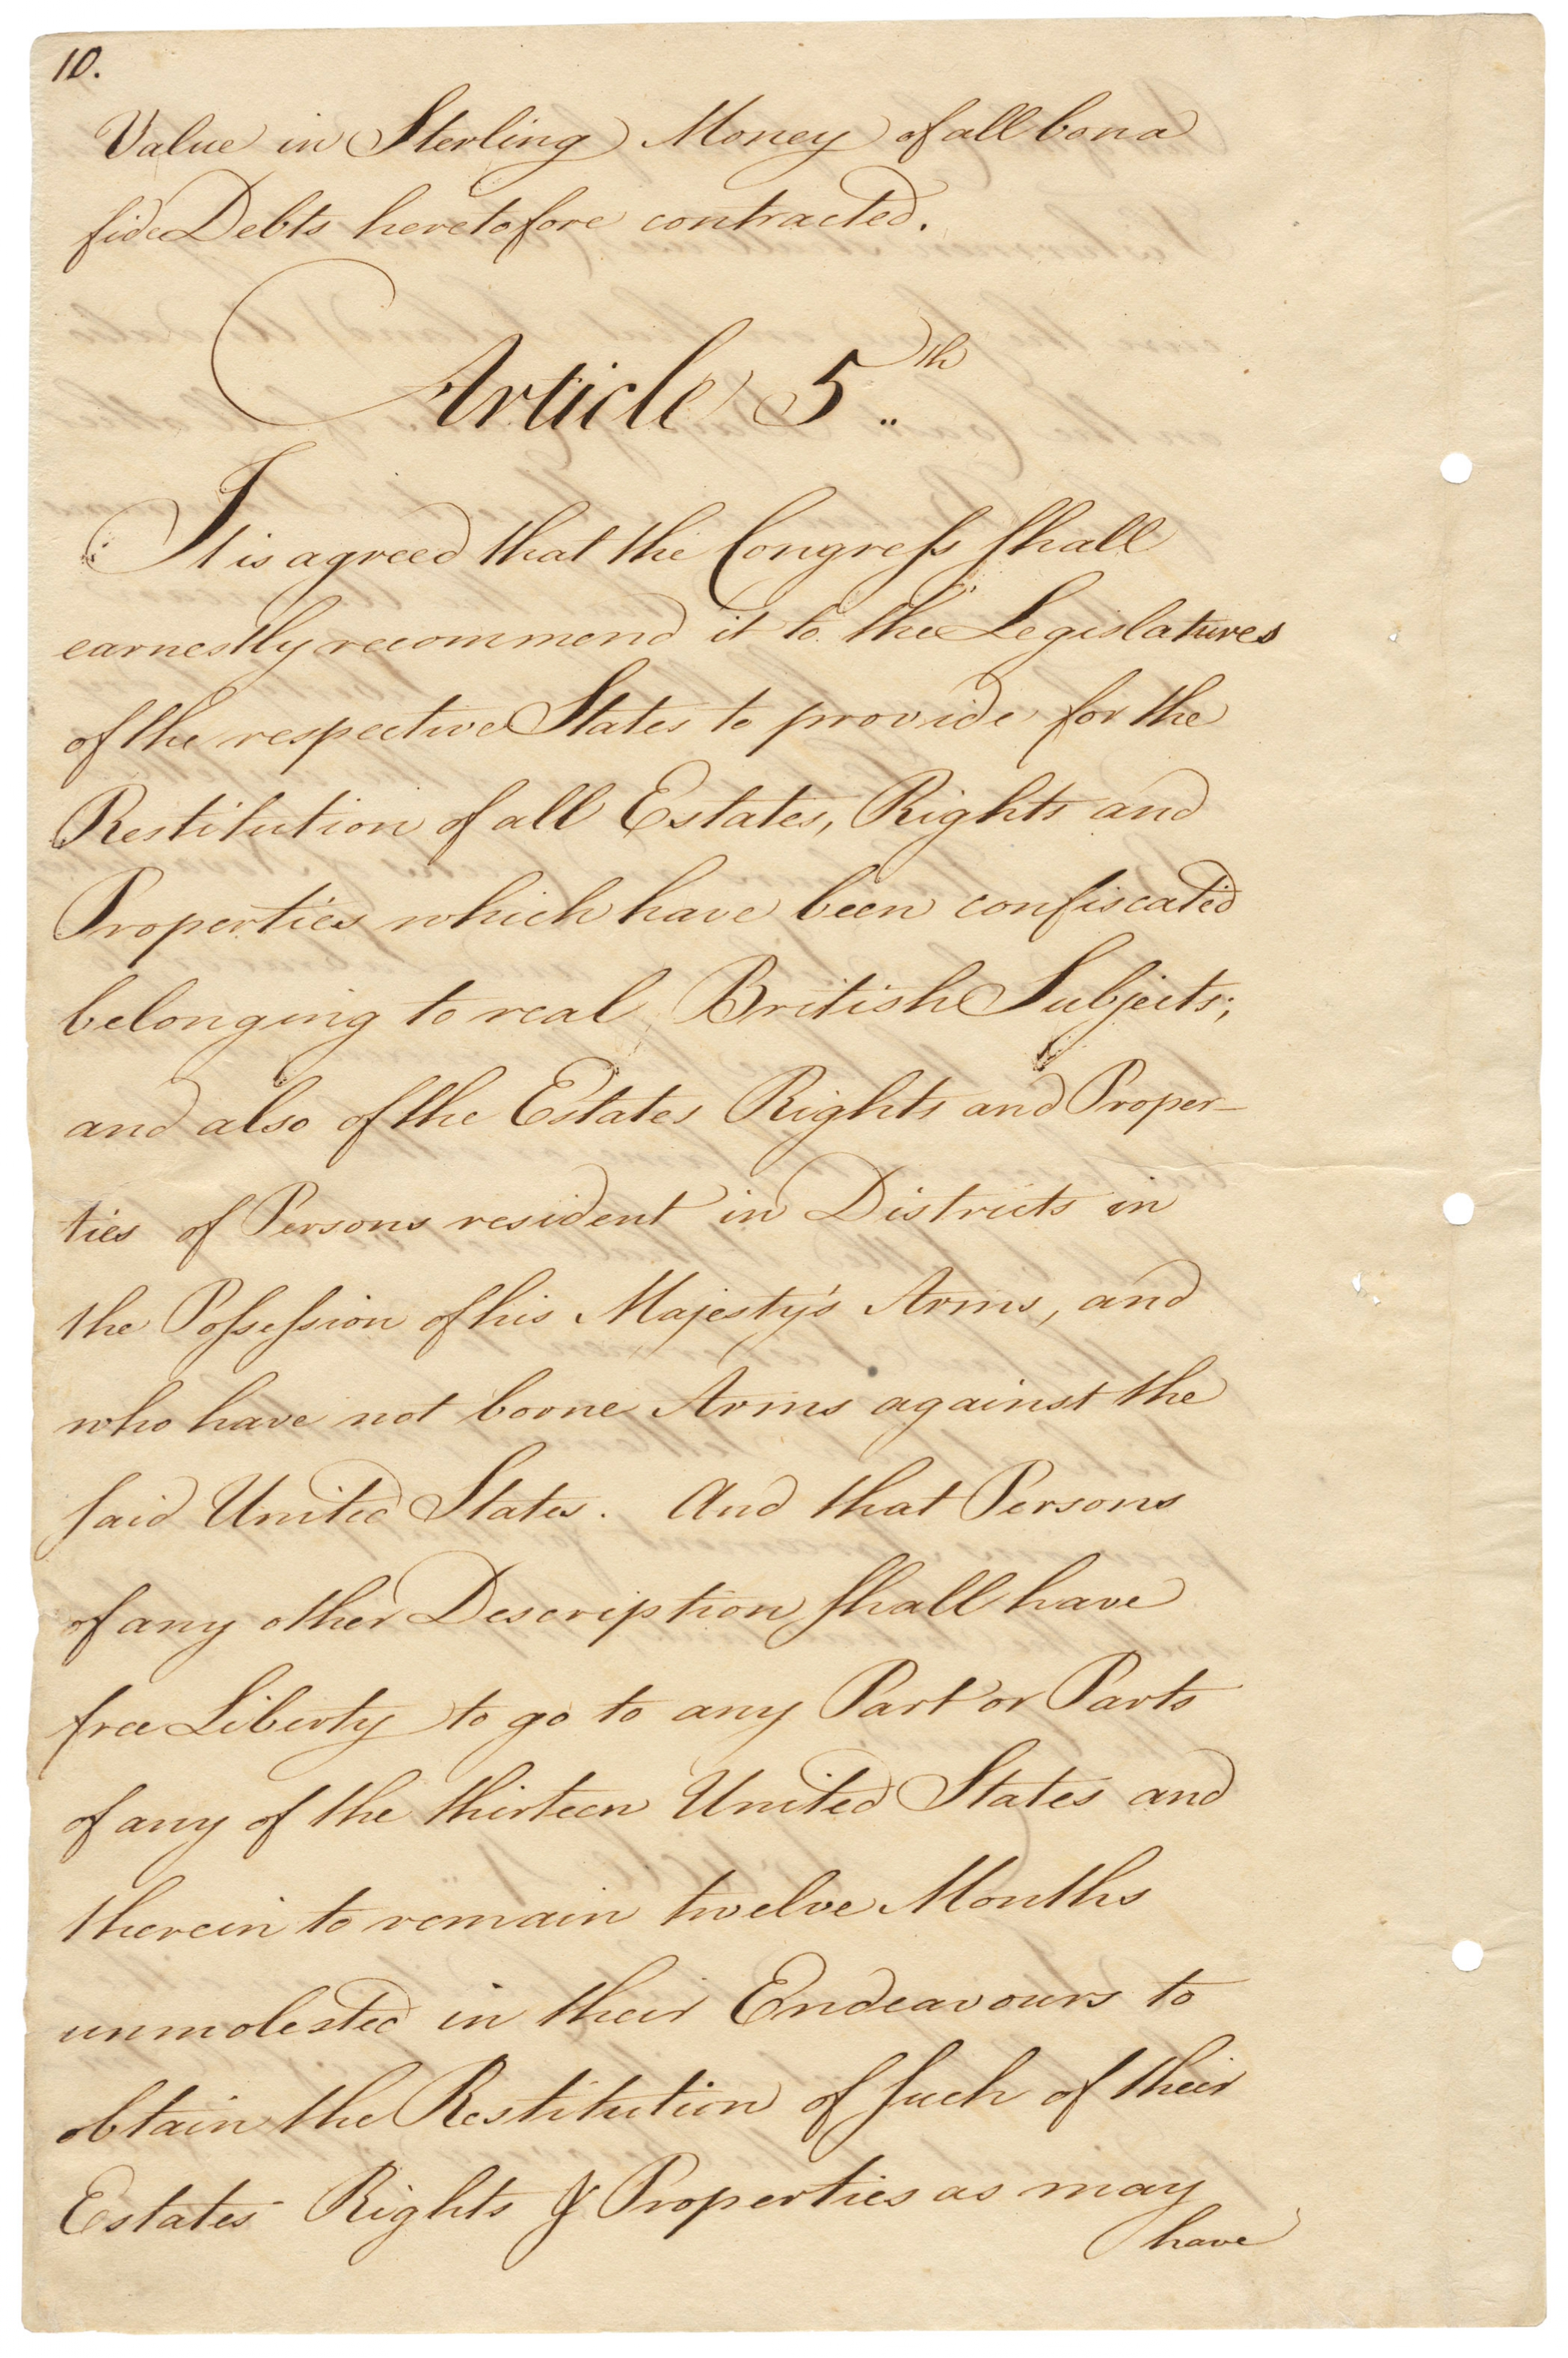 10.
Value in Sterling Money of all bona
fide Debts heretofore contracted.
Article 5.th
It is agreed that the Congreſs ſhall
earnestly recommend it to the Legislatures
of the respective States to provide for the
Restitution of all Estates, Rights and
Properties which have been confiscated
belonging to real British Subjects;
and also of the Estates Rights and Proper-
ties of Persons resident in Districts in
the Poſseſsion of his Majesty's Arms, and
who have not borne Arms against the
ſaid United States. And that Persons
of any other Description ſhall have
free Liberty to go to any Part or Parts
of any of the thirteen United States and
therein to remain twelve Months
unmolested in their Endeavours to
obtain the Restitution of ſuch of their
Estates Rights & Properties as may
have